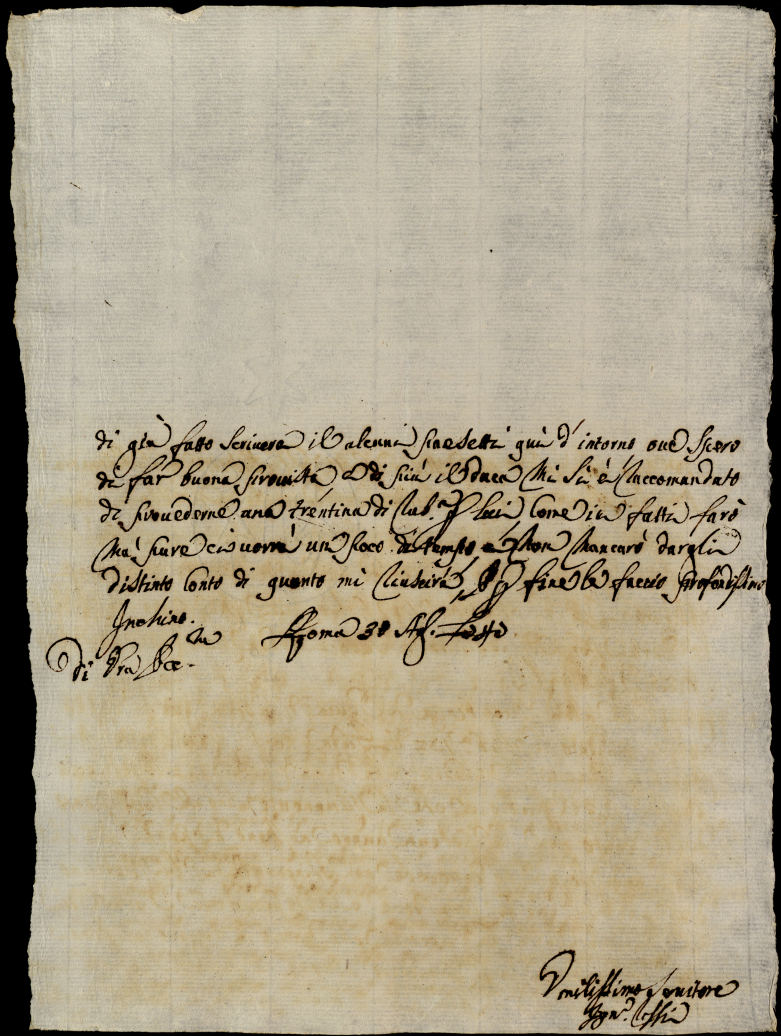 di già fatto scrivere il alcuni paesetti qui d'intorno ove spero
di far buona provista e di più il Duca mi si è raccomandato
di provederne una trentina di Rub.a p lui come in fatti farò
Mà pure ci vorrà un poco di tempo e non mancarò dargli
distinto conto di quanto mi riuscirà, e p fine le faccio profondissimo
Inchino.
Roma 30
Di Vra Ecc.za
Umilissimo Servitore